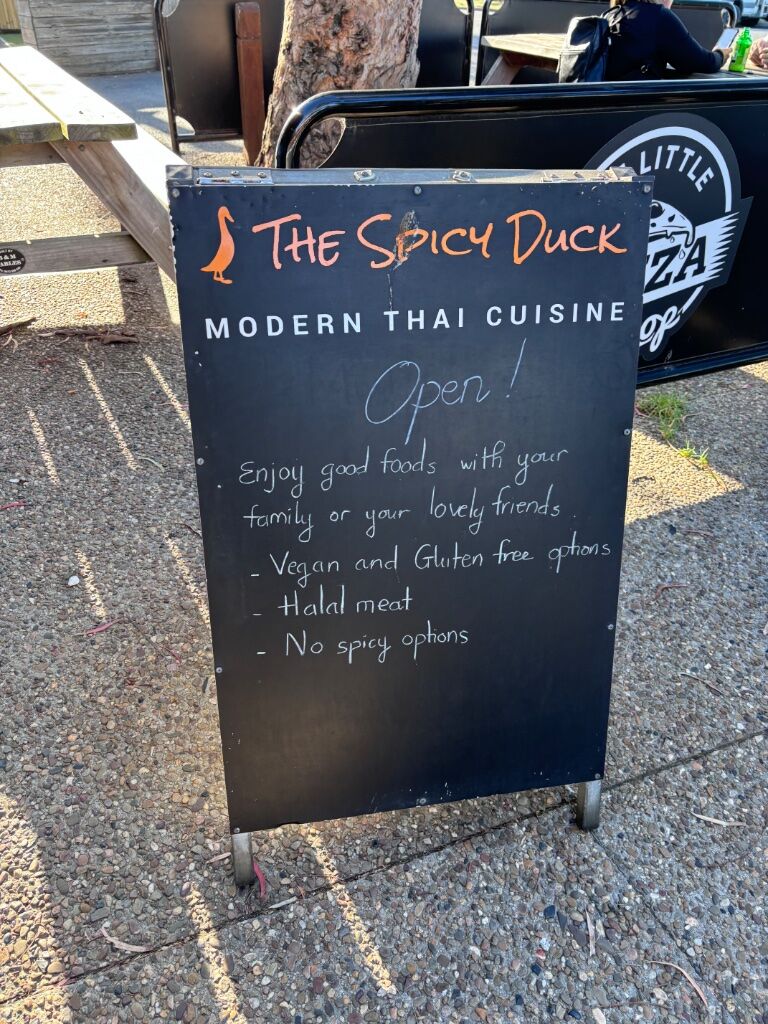 THE SPICY DUCK
MODERN THAI CUISINE
Open!
Enjoy good foods with your
family or your lovely friends.
- Vegan and Gluten free options
- Halal meat
- No spicy options
LITTLE